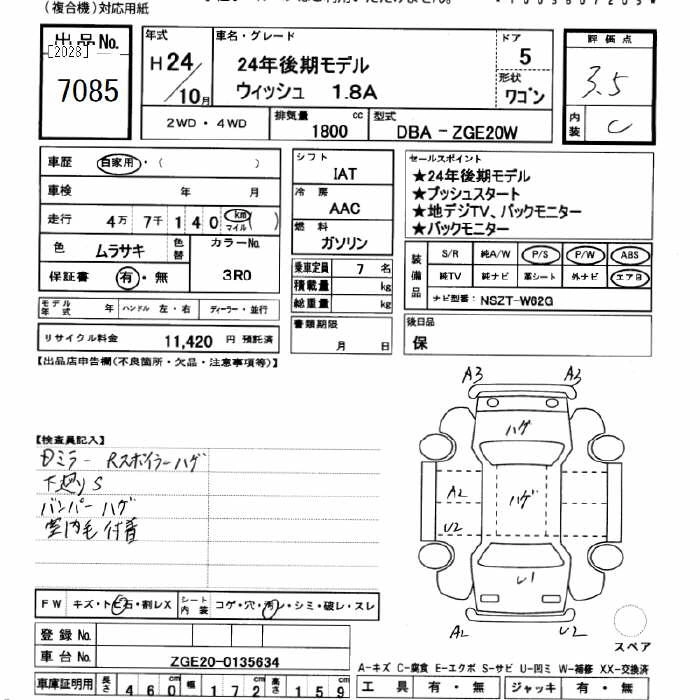 (複合機)対応用紙
出品No.
[2028]
7085
年式
H24/10月
車名・グレード
24年後期モデル
ウィッシュ 1.8A
ドア
5
形状
ワゴン
評価点
3.5
内装
C
2WD・4WD
排気量 cc
1800
型式
DBA-ZGE20W
車歴 自家用・( )
車検 年 月
走行 4万 7千 140 km マイル ( )
色 ムラサキ 色替 カラーNo.
保証書 有・無 3R0
モデル年式 年 ハンドル 左・右 ディーラー・並行
リサイクル料金 11,420 円 預託済
シフト
IAT
冷房
AAC
燃料
ガソリン
乗車定員 7 名
積載量 kg
総重量 kg
書類期限
月 日
セールスポイント
★24年後期モデル
★プッシュスタート
★地デジTV、バックモニター
★バックモニター
装備品
S/R 純A/W P/S P/W ABS
純TV 純ナビ 革シート 外ナビ エアB
ナビ型番: NSZT-W62G
後日品
保
【出品店申告欄(不良箇所・欠品・注意事項等)】
【検査員記入】
Dミラー Rスポイラーハゲ
下廻りS
バンパーハゲ
室内毛付着
A3 A3
ハゲ
ハゲ
A2
U2
U1
A2 U2
スペア
FW キズ・トビ石・割レX シート内装 コゲ・穴・汚レ・シミ・破レ・スレ
登録No.
車台No. ZGE20-0135634
A-キズ C-腐食 E-エクボ S-サビ U-凹ミ W-補修 XX-交換済
車庫証明用 長さ 460 cm 幅 172 cm 高さ 159 cm
工具 有・無 ジャッキ 有・無